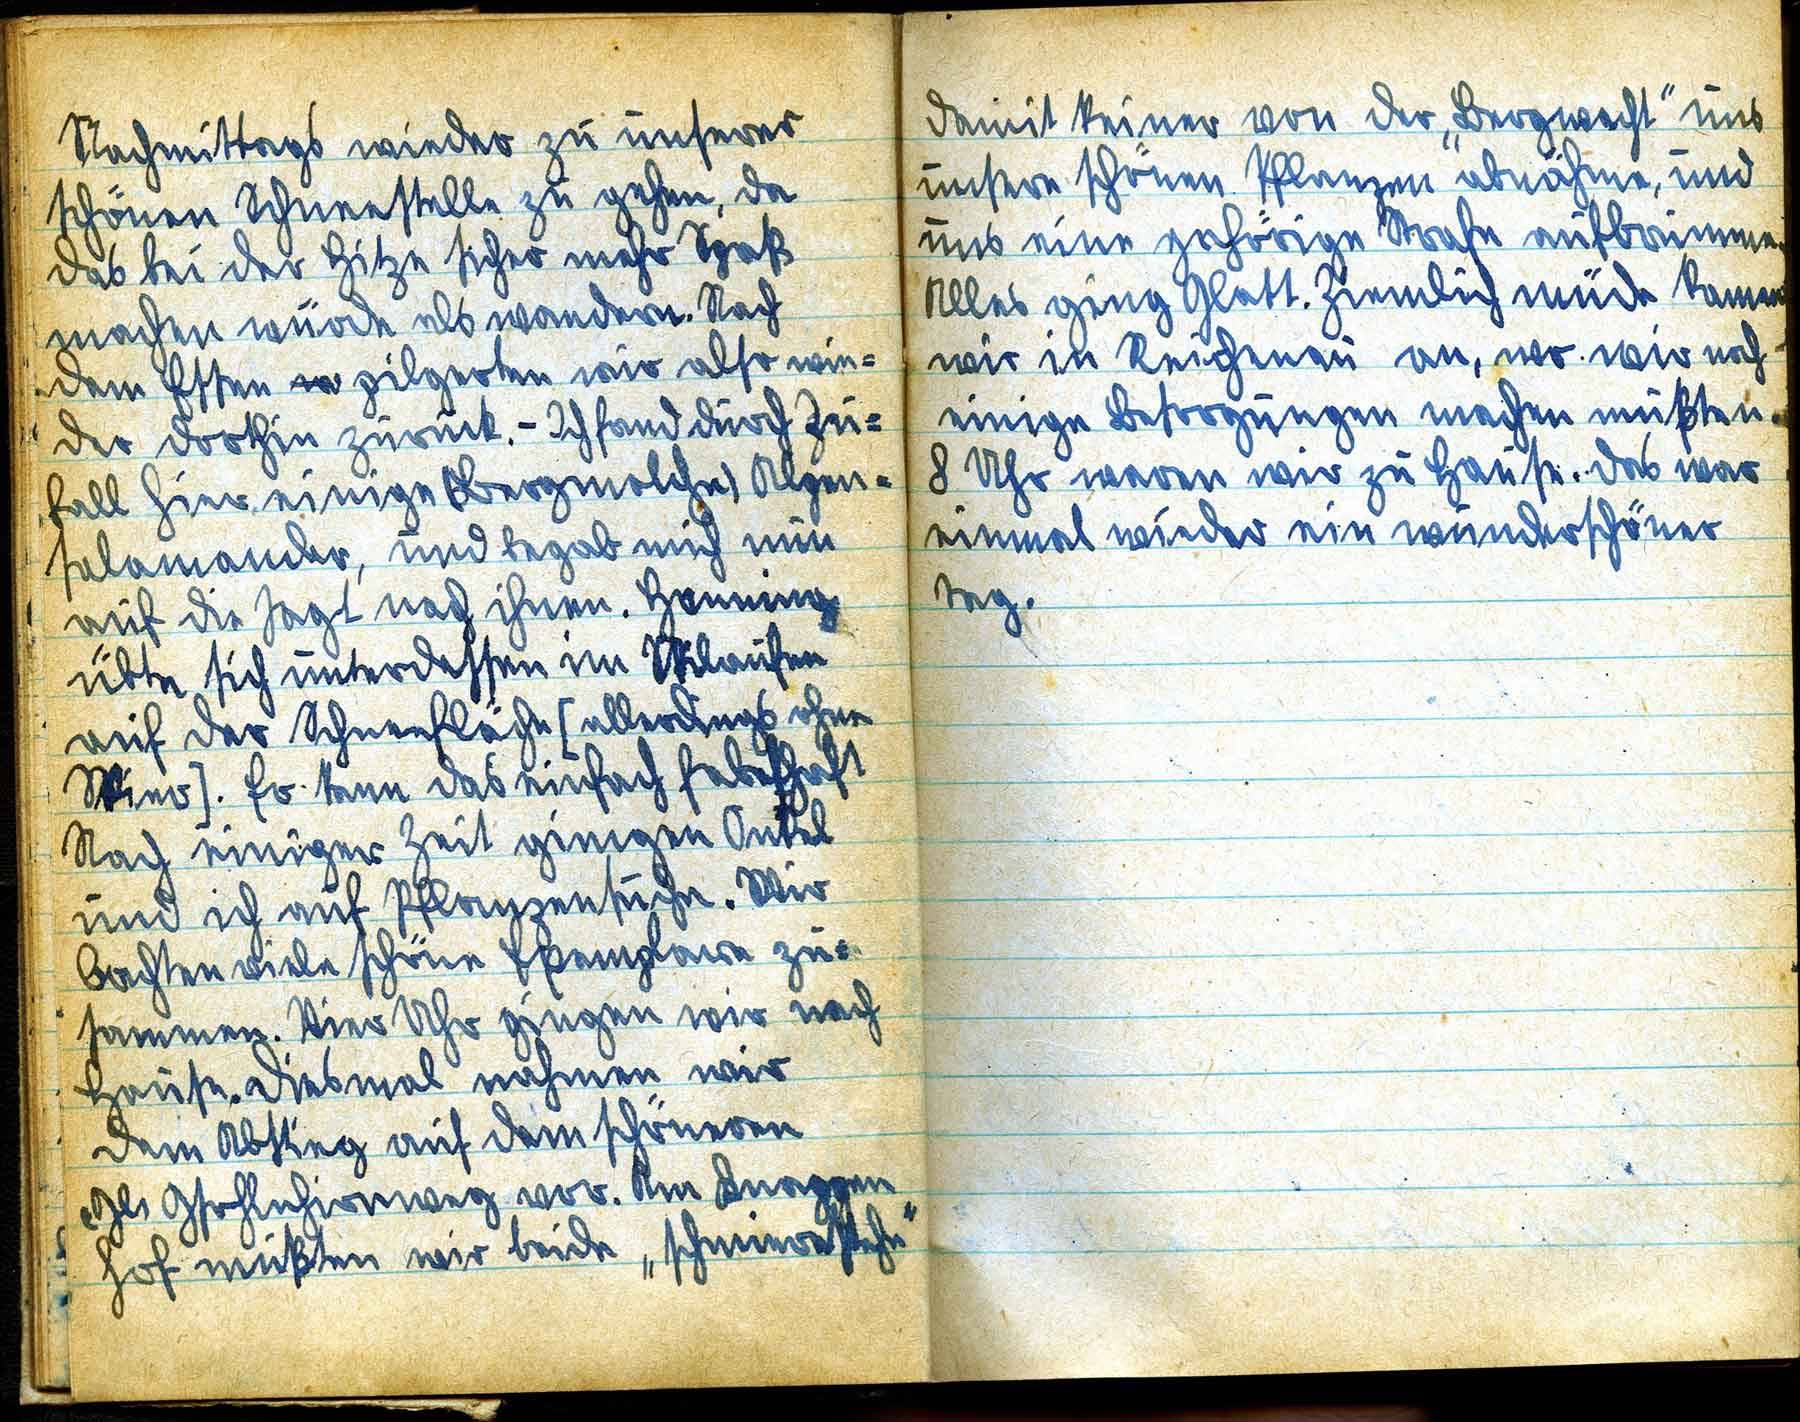 Nachmittags wieder zu unserer
schönen Schneestelle zu gehen, da
das bei der Hitze sicher mehr Spaß
machen würde als wandern. Nach
dem Essen pilgerten wir also wie=
der dorthin zurück. - Ich fand durch Zu=
fall hier einige (Bergmolche) Alpen=
salamander, und begab mich nun
auf die Jagt nach ihnen. Henning
übte sich unterdessen im Skilaufen
auf der Schneefläche [allerdings ohne
Skier]. Er kann das einfach fabelhaft
Nach einiger Zeit gingen Onkel
und ich auf Pflanzensuche. Wir
bachten viele schöne Exemplare zu=
sammen. Vier Uhr gingen wir nach
Hause. Diesmal nahmen wir
dem Abstieg auf dem schöneren
weg vor. Am Knappen
hof mußten wir beide „schmierestehn"
damit keiner von der „Bergwacht" uns
unsere schönen Pflanzen abnähme, und
uns eine gehörige Strafe aufbrumme.
Alles ging Glatt. Ziemlich müde kamen
wir in Reichenau an, wo wir noch
einige Besorgungen machen mußten.
8 Uhr waren wir zu Hause. Das war
einmal wieder ein wunderschöner
Tag.